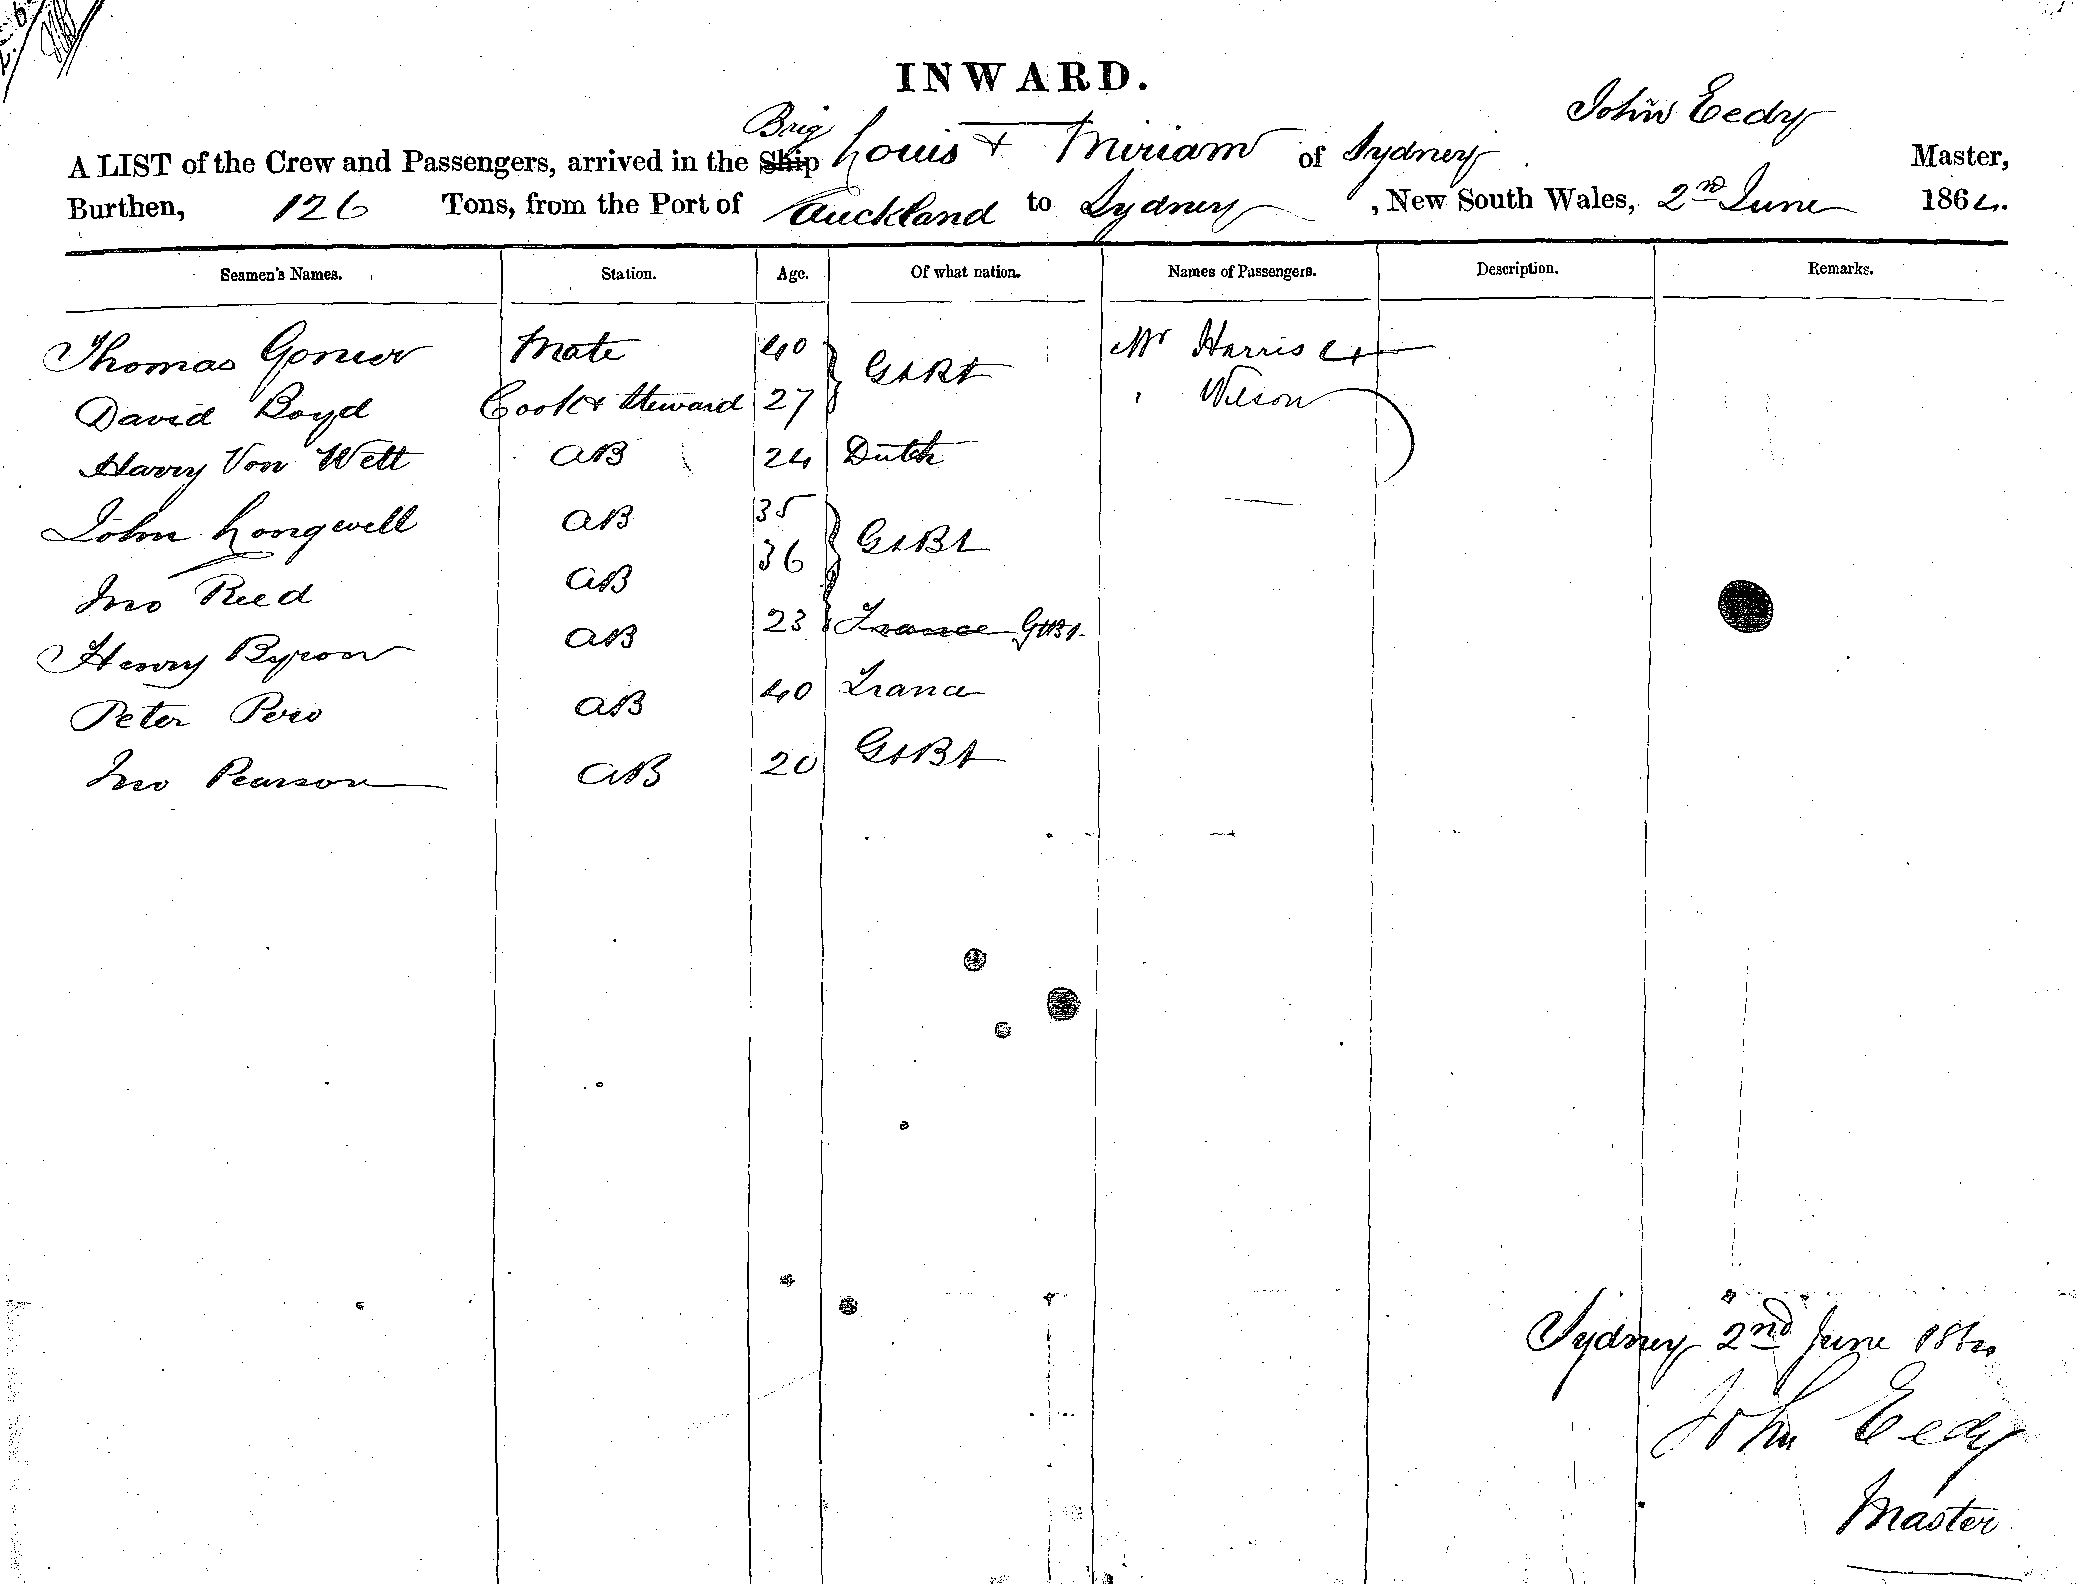 INWARD.
John Eedy
Brig
A LIST of the Crew and Passengers, arrived in the Ship Louis & Miriam of Sydney Master,
Burthen, 126 Tons, from the Port of Auckland to Sydney, New South Wales, 2nd June 1864.
Seamen's Names. Station. Age. Of what nation. Names of Passengers. Description. Remarks.
Thomas Mate 40 Gt Bt Mr Harris
David Boyd Cook & Steward 27 " Wilson
Harry Von Wett AB 24 Dutch
John Longwell AB 35 Gt Bt
Jno Reed AB 36
Henry Byron AB 23 France Gt Bt.
Peter Pero AB 40 France
Jno Pearson AB 20 Gt Bt
Sydney 2nd June 1864
John Eedy
Master